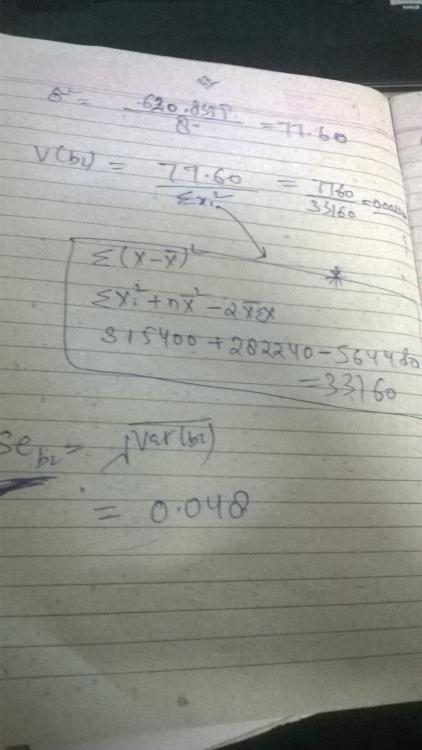 σ̂² = 620.8595 / 8 = 77.60
V(b₂) = 77.60 / Σxᵢ² = 7760 / 33160
Σ(x-x̄)²
*
Σxᵢ² + nx̄² - 2x̄Σx
315400 + 282240 - 564480
= 33160
Se b₂ = √Var(b₂)
= 0.048